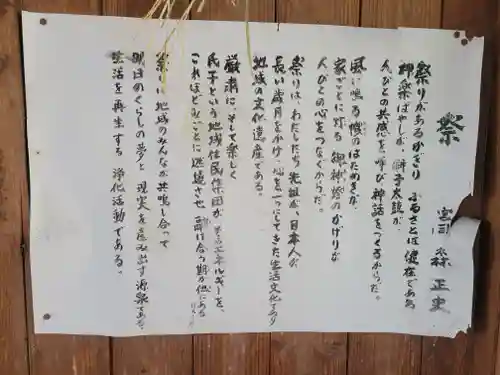 祭
宮森正史
祭りがあるかぎり ふるさとは健在である
神楽ばやしが、獅子太鼓が
人びとの共感を、呼び神話をつくるからだ。
風に鳴る幟のはためきが、
家ごとに灯る御神燈のかげりが
人びとの心をつなぐからだ。
祭りは、わたしたち先祖が、日本人が、
長い歳月をかけ、心を一つにしてきた生活文化であり
地域の文化遺産である。
厳粛に、そして楽しく
氏子という地域住民集団が そのエネルギーを、
これほどみごとに連続させ 期が他にある
祭りは地域のみんなが共鳴し合って
明日のくらしの夢と 現実を産み出す源泉である
生活を再生する 浄化活動である。